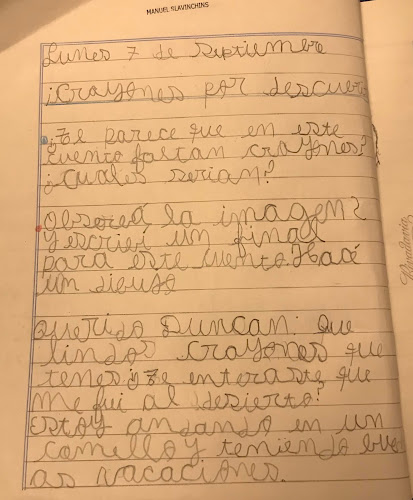 MANUEL SLAVINCHINS
Lunes 7 de septiembre
¡Crayones por descubrir
¿Te parece que en este
cuento faltan crayones?
¿Cuales serian?
Observá la imagen?
y escribí un final
para este cuento. Hacé
un dibujo
Querido Duncan: que
lindos crayones que
tenes ¿Te enteraste que
me fui al desierto?
Estoy andando en un
camello y teniendo bue
as vacaciones.